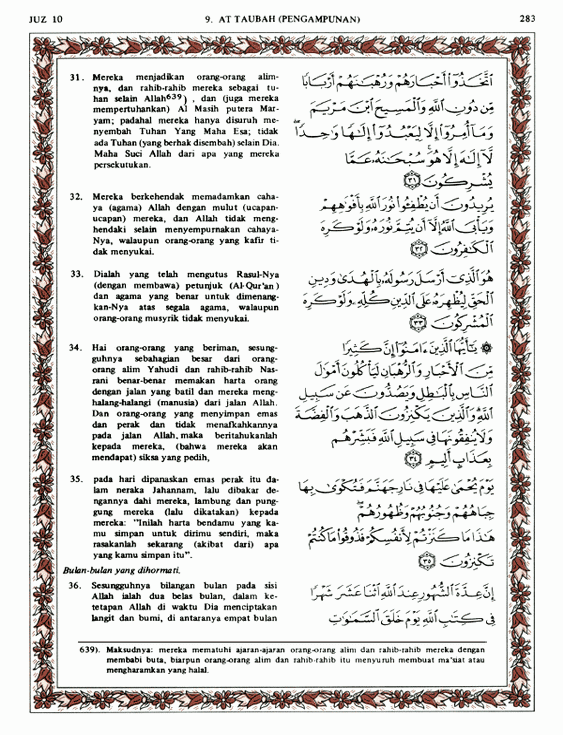 JUZ 10 9. AT TAUBAH (PENGAMPUNAN) 283
31. Mereka menjadikan orang-orang alim-
nya, dan rahib-rahib mereka sebagai tu-
han selain Allah639) , dan (juga mereka
mempertuhankan) Al Masih putera Mar-
yam; padahal mereka hanya disuruh me-
nyembah Tuhan Yang Maha Esa; tidak
ada Tuhan (yang berhak disembah) selain Dia.
Maha Suci Allah dari apa yang mereka
persekutukan.
اتَّخَذُوا أَحْبَارَهُمْ وَرُهْبَانَهُمْ أَرْبَابًا
مِّن دُونِ اللَّهِ وَالْمَسِيحَ ابْنَ مَرْيَمَ
وَمَا أُمِرُوا إِلَّا لِيَعْبُدُوا إِلَٰهًا وَاحِدًا
لَّا إِلَٰهَ إِلَّا هُوَ سُبْحَانَهُ عَمَّا
يُشْرِكُونَ ٣١
32. Mereka berkehendak memadamkan caha-
ya (agama) Allah dengan mulut (ucapan-
ucapan) mereka, dan Allah tidak meng-
hendaki selain menyempurnakan cahaya-
Nya, walaupun orang-orang yang kafir ti-
dak menyukai.
يُرِيدُونَ أَن يُطْفِئُوا نُورَ اللَّهِ بِأَفْوَاهِهِمْ
وَيَأْبَى اللَّهُ إِلَّا أَن يُتِمَّ نُورَهُ وَلَوْ كَرِهَ
الْكَافِرُونَ ٣٢
33. Dialah yang telah mengutus Rasul-Nya
(dengan membawa) petunjuk (Al-Qur'an)
dan agama yang benar untuk dimenang-
kan-Nya atas segala agama, walaupun
orang-orang musyrik tidak menyukai.
هُوَ الَّذِي أَرْسَلَ رَسُولَهُ بِالْهُدَىٰ وَدِينِ
الْحَقِّ لِيُظْهِرَهُ عَلَى الدِّينِ كُلِّهِ وَلَوْ كَرِهَ
الْمُشْرِكُونَ ٣٣
34. Hai orang-orang yang beriman, sesung-
guhnya sebahagian besar dari orang-
orang alim Yahudi dan rahib-rahib Nas-
rani benar-benar memakan harta orang
dengan jalan yang batil dan mereka meng-
halang-halangi (manusia) dari jalan Allah.
Dan orang-orang yang menyimpan emas
dan perak dan tidak menafkahkannya
pada jalan Allah, maka beritahukanlah
kepada mereka, (bahwa mereka akan
mendapat) siksa yang pedih,
۞ يَا أَيُّهَا الَّذِينَ آمَنُوا إِنَّ كَثِيرًا
مِّنَ الْأَحْبَارِ وَالرُّهْبَانِ لَيَأْكُلُونَ أَمْوَالَ
النَّاسِ بِالْبَاطِلِ وَيَصُدُّونَ عَن سَبِيلِ
اللَّهِ وَالَّذِينَ يَكْنِزُونَ الذَّهَبَ وَالْفِضَّةَ
وَلَا يُنفِقُونَهَا فِي سَبِيلِ اللَّهِ فَبَشِّرْهُم
بِعَذَابٍ أَلِيمٍ ٣٤
35. pada hari dipanaskan emas perak itu da-
lam neraka Jahannam, lalu dibakar de-
ngannya dahi mereka, lambung dan pung-
gung mereka (lalu dikatakan) kepada
mereka: "Inilah harta bendamu yang ka-
mu simpan untuk dirimu sendiri, maka
rasakanlah sekarang (akibat dari) apa
yang kamu simpan itu".
يَوْمَ يُحْمَىٰ عَلَيْهَا فِي نَارِ جَهَنَّمَ فَتُكْوَىٰ بِهَا
جِبَاهُهُمْ وَجُنُوبُهُمْ وَظُهُورُهُمْ
هَٰذَا مَا كَنَزْتُمْ لِأَنفُسِكُمْ فَذُوقُوا مَا كُنتُمْ
تَكْنِزُونَ ٣٥
Bulan-bulan yang dihormati.
36. Sesungguhnya bilangan bulan pada sisi
Allah ialah dua belas bulan, dalam ke-
tetapan Allah di waktu Dia menciptakan
langit dan bumi, di antaranya empat bulan
إِنَّ عِدَّةَ الشُّهُورِ عِندَ اللَّهِ اثْنَا عَشَرَ شَهْرًا
فِي كِتَابِ اللَّهِ يَوْمَ خَلَقَ السَّمَاوَاتِ
639). Maksudnya: mereka mematuhi ajaran-ajaran orang-orang alim dan rahib-rahib mereka dengan
membabi buta, biarpun orang-orang alim dan rahib-rahib itu menyuruh membuat ma'siat atau
mengharamkan yang halal.